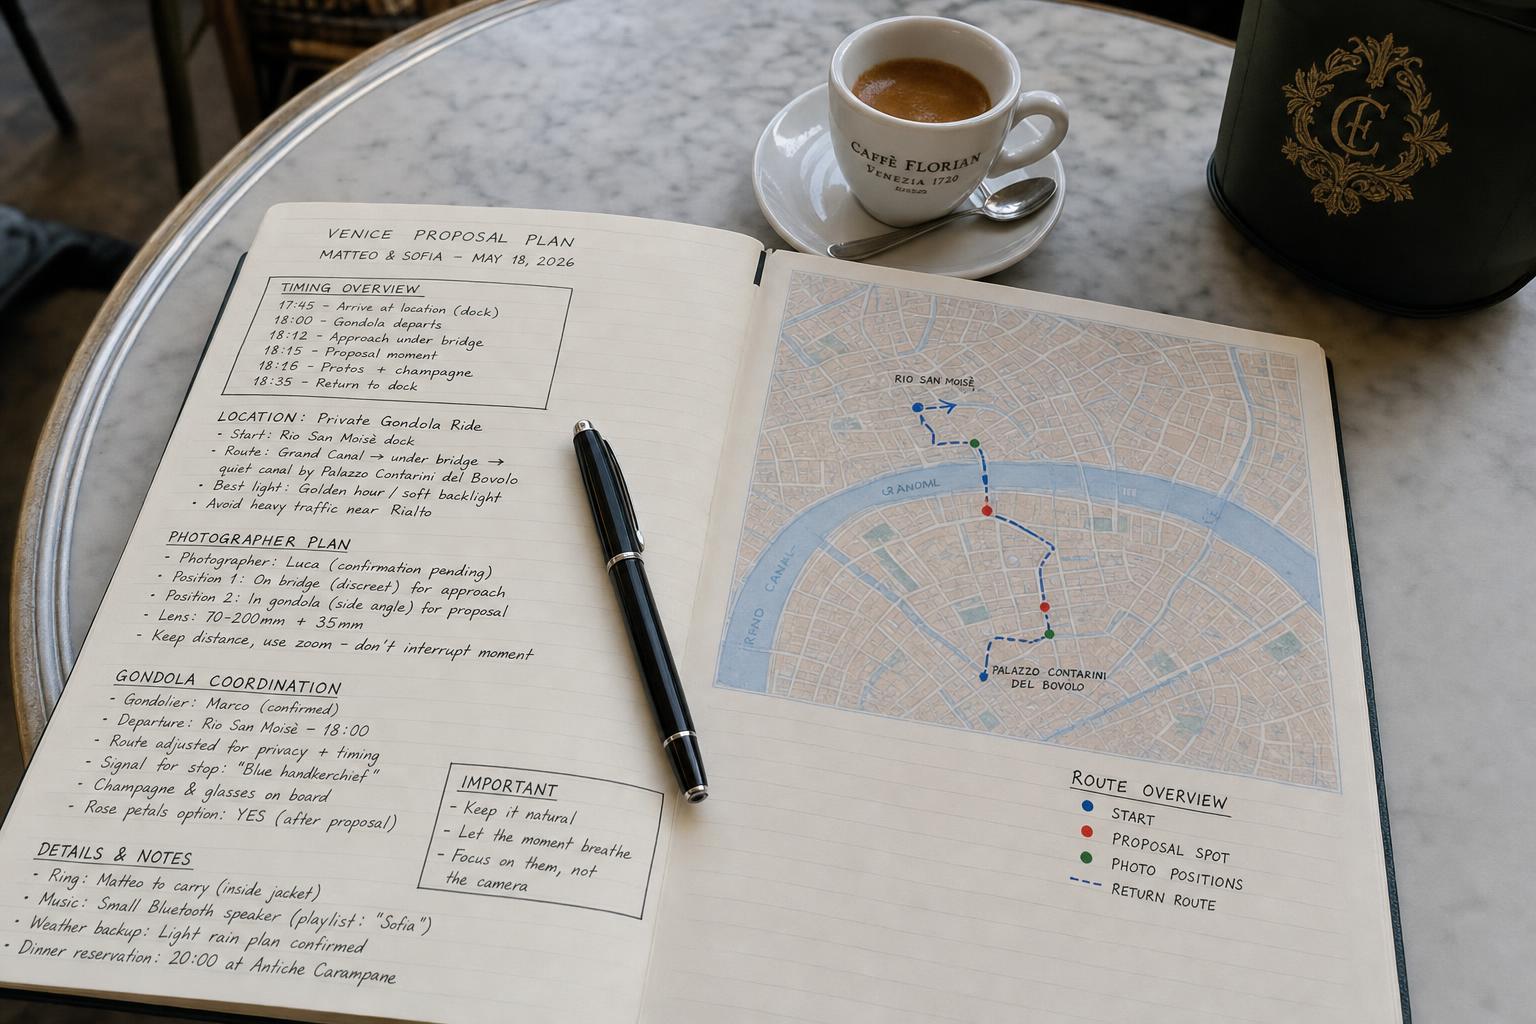 VENICE PROPOSAL PLAN
MATTEO & SOFIA – MAY 18, 2026
TIMING OVERVIEW
17:45 – Arrive at location (dock)
18:00 – Gondola departs
18:12 – Approach under bridge
18:15 – Proposal moment
18:16 – Protos + champagne
18:35 – Return to dock
LOCATION: Private Gondola Ride
- Start: Rio San Moisè dock
- Route: Grand Canal → under bridge →
quiet canal by Palazzo Contarini del Bovolo
• Best light: Golden hour / soft backlight
- Avoid heavy traffic near Rialto
PHOTOGRAPHER PLAN
- Photographer: Luca (confirmation pending)
• Position 1: On bridge (discreet) for approach
• Position 2: In gondola (side angle) for proposal
- Lens: 70-200mm + 35mm
- Keep distance, use zoom – don't interrupt moment
GONDOLA COORDINATION
- Gondolier: Marco (confirmed)
- Departure: Rio San Moisè – 18:00
- Route adjusted for privacy + timing
- Signal for stop: "Blue handkerchief"
- Champagne & glasses on board
- Rose petals option: YES (after proposal)
IMPORTANT
- Keep it natural
- Let the moment breathe
- Focus on them, not
the camera
DETAILS & NOTES
- Ring: Matteo to carry (inside jacket)
• Music: Small Bluetooth speaker (playlist: "Sofia")
• Weather backup: Light rain plan confirmed
• Dinner reservation: 20:00 at Antiche Carampane
CAFFÈ FLORIAN
VENEZIA 1720
RIO SAN MOISÈ
RAND CANAL
PALAZZO CONTARINI
DEL BOVOLO
ROUTE OVERVIEW
START
PROPOSAL SPOT
PHOTO POSITIONS
RETURN ROUTE